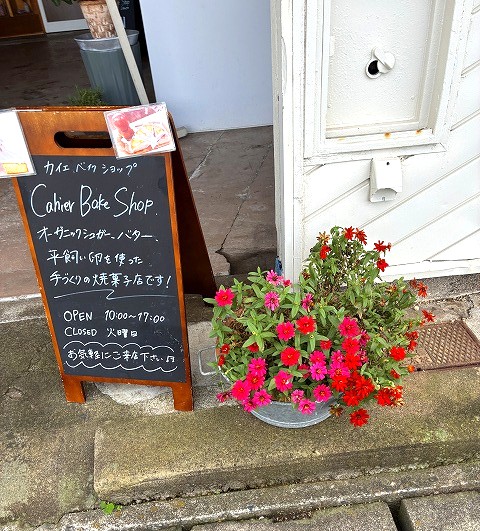 カイエ ベイク ショップ
Cahier Bake Shop.
オーガニックシュガー、バター、
平飼い卵を使った
手づくりの焼菓子店です!
OPEN 10:00〜17:00
CLOSED 火曜日
お気軽にご来店下さい♫